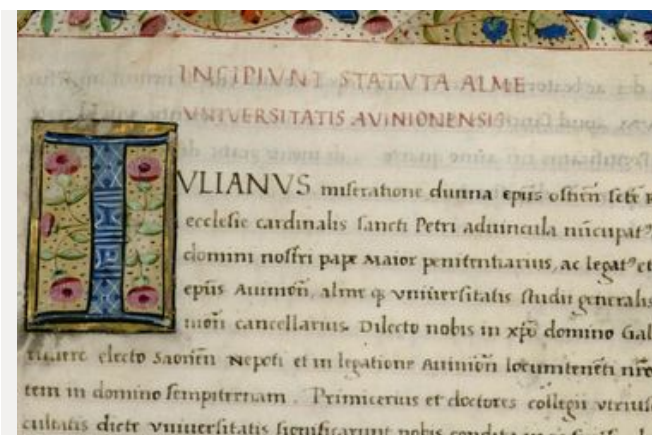 INCIPIVNT STATVTA ALME
VNIVERSITATIS AVINIONENSIS
IVLIANVS miseratione diuina ep̄us ostieñ scīe
ecclesie cardinalis sancti Petri aduincula nūcupatꝰ
domini nostri pape Maior penitentiarius, ac legatꝰ et
ep̄us Auinioñ, alme q̄ vniuersitatis studii generalis
nioñ cancellarius. Dilecto nobis in xp̄o domino Gal
electo Saonieñ Nepoti et in legatione Auinioñ locumteneñti nr̄o
tem in domino sempiternam. Primicerius et doctores collegii vtrius
cultatis dicte vniuersitatis significarunt nobis